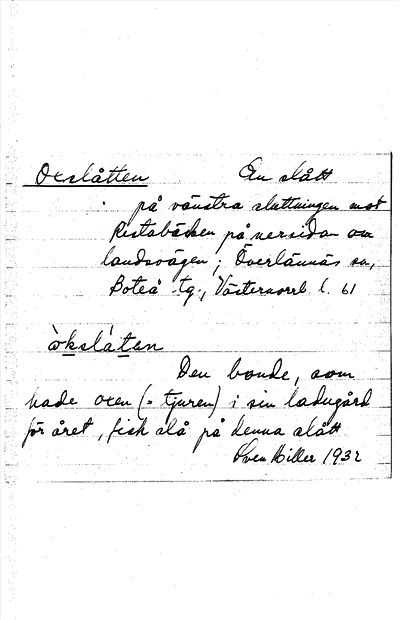 Oxslåtten En slått
på vänstra sluttningen mot
Ristabäcken på nersidan om
landsvägen; Överlännäs sn,
Boteå tg., Västernorrl l. 61
òkslá̀tan
Den bonde, som
hade oxen (= tjuren) i sin ladugård
för året, fick slå på denna slått
Sven Hiller 1932